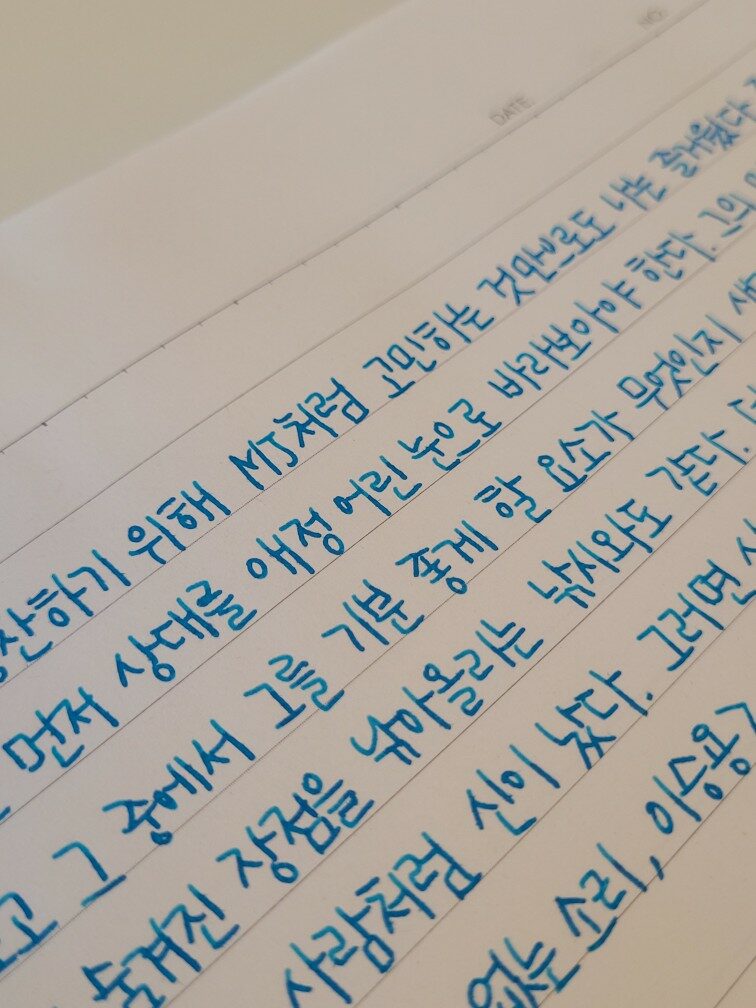 NO.
DATE.
위해 MJ처럼 고민하는 것만으로도 나는 즐거웠다
먼저 상대를 애정 어린 눈으로 바라보아야 한다. 그의
그 중에서 그를 기분 좋게 할 요소가 무엇인지
숨겨진 장점을 낚아올리는 낚시와도 같다.
사람처럼 신이 났다. 그러면
없는 소리, 이승용